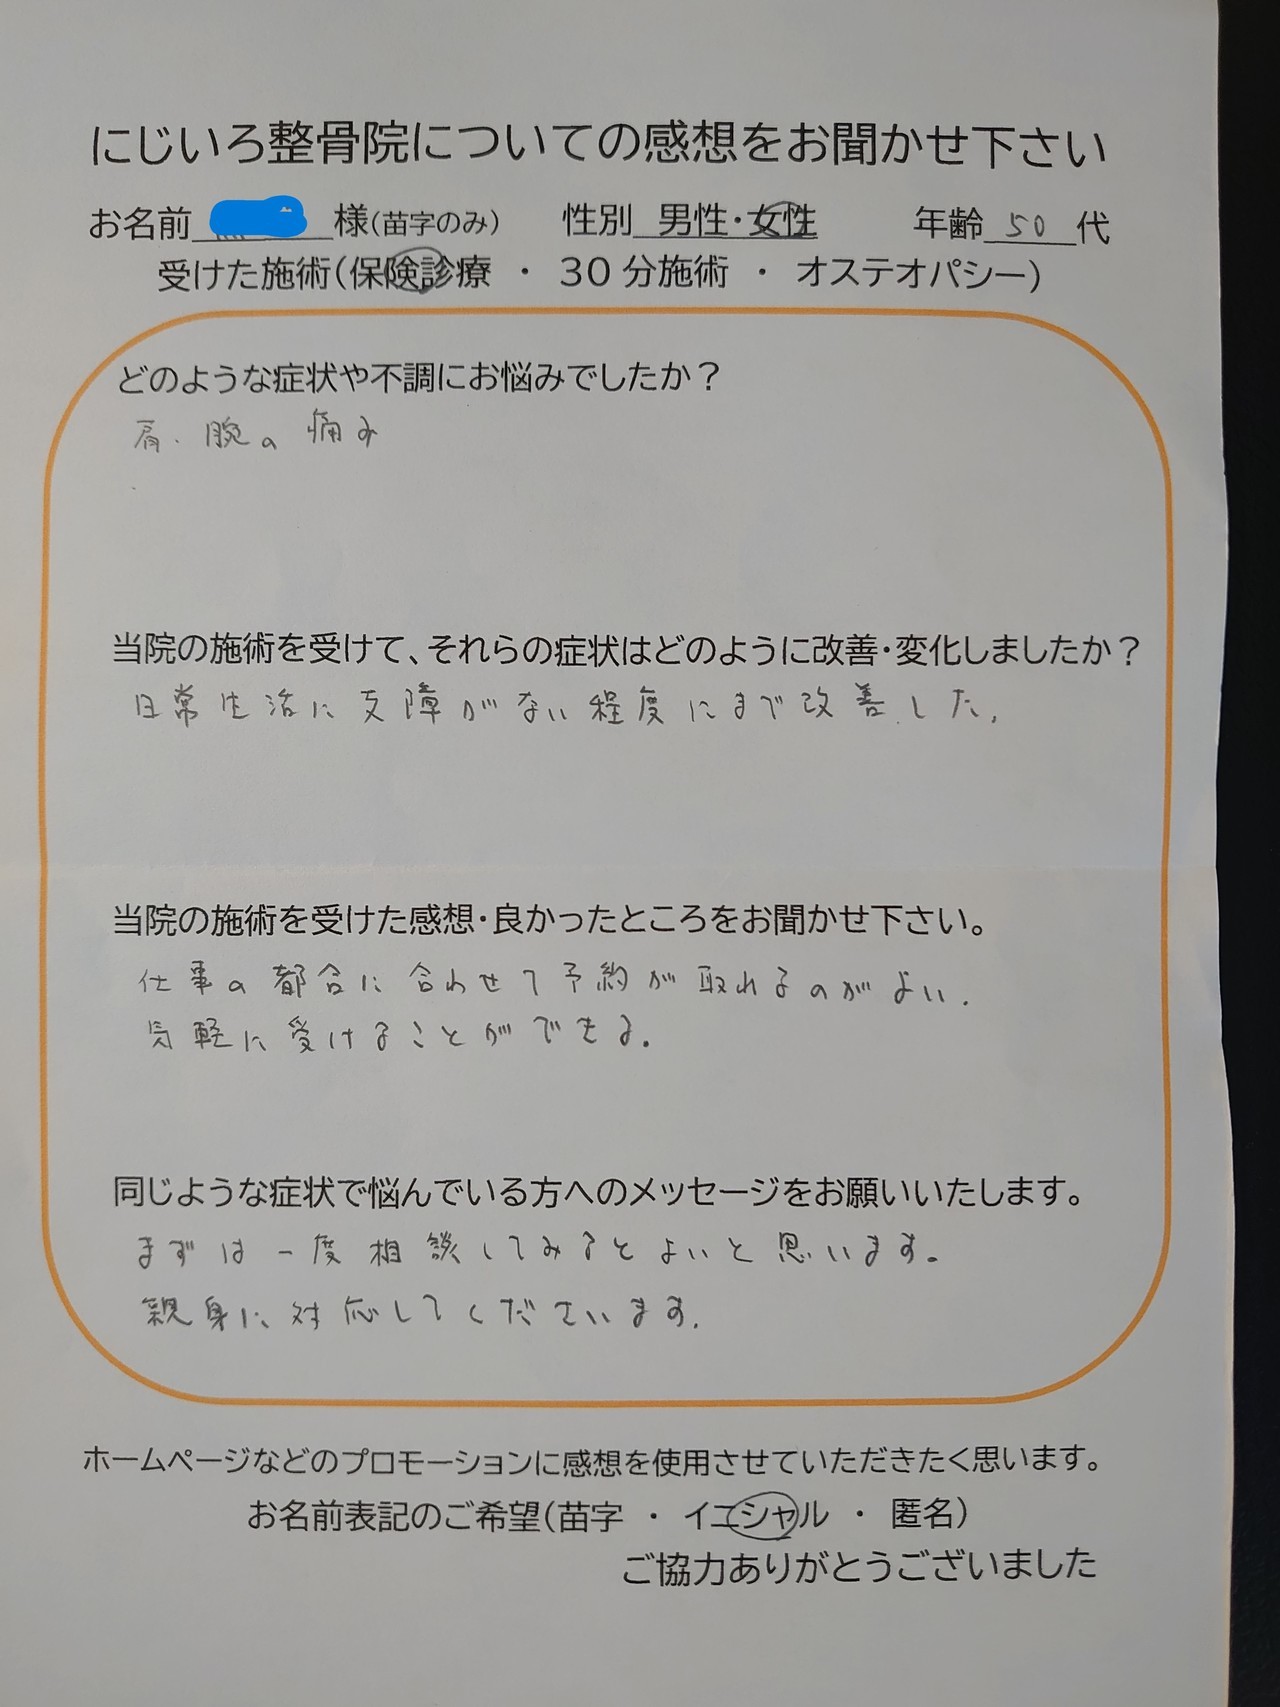 にじいろ整骨院についての感想をお聞かせ下さい
お名前 様(苗字のみ) 性別 男性・女性 年齢 50 代
受けた施術(保険診療 ・ 30分施術 ・ オステオパシー)
どのような症状や不調にお悩みでしたか?
肩、腕の痛み
当院の施術を受けて、それらの症状はどのように改善・変化しましたか?
日常生活に支障がない程度にまで改善した。
当院の施術を受けた感想・良かったところをお聞かせ下さい。
仕事の都合に合わせて予約が取れるのがよい。
気軽に受けることができる。
同じような症状で悩んでいる方へのメッセージをお願いいたします。
まずは一度相談してみるとよいと思います。
親身に対応してくださいます。
ホームページなどのプロモーションに感想を使用させていただきたく思います。
お名前表記のご希望(苗字 ・ イニシャル ・ 匿名)
ご協力ありがとうございました